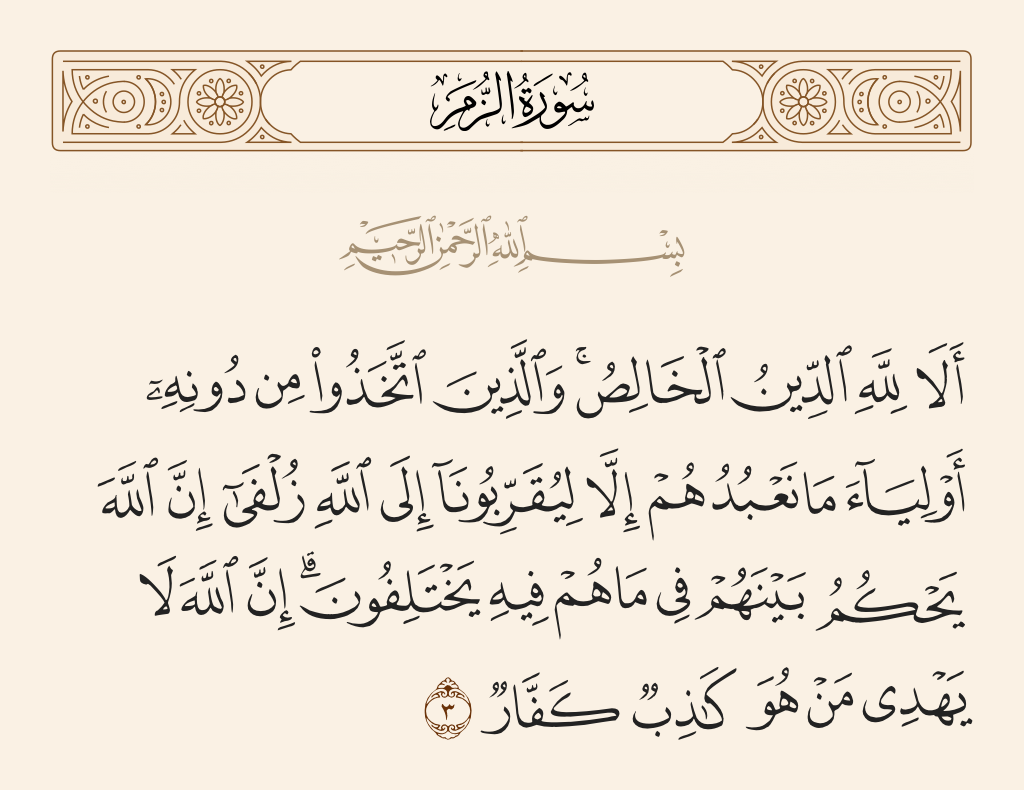 سُورَةُ الزُّمَرِ
بِسْمِ ٱللَّهِ ٱلرَّحْمَٰنِ ٱلرَّحِيمِ
أَلَا لِلَّهِ ٱلدِّينُ ٱلْخَالِصُ ۚ وَٱلَّذِينَ ٱتَّخَذُوا۟ مِن دُونِهِۦٓ
أَوْلِيَآءَ مَا نَعْبُدُهُمْ إِلَّا لِيُقَرِّبُونَآ إِلَى ٱللَّهِ زُلْفَىٰٓ إِنَّ ٱللَّهَ
يَحْكُمُ بَيْنَهُمْ فِى مَا هُمْ فِيهِ يَخْتَلِفُونَ ۗ إِنَّ ٱللَّهَ لَا
يَهْدِى مَنْ هُوَ كَـٰذِبٌ كَفَّارٌ ٣